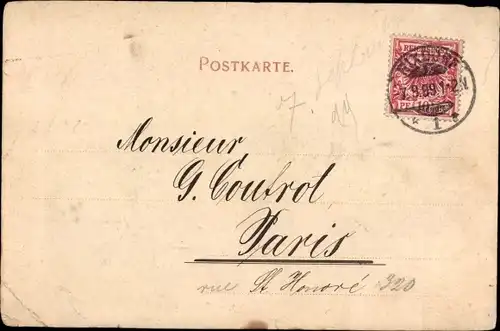 POSTKARTE.
Monsieur
G. Coutrot
Paris
rue St Honoré 320